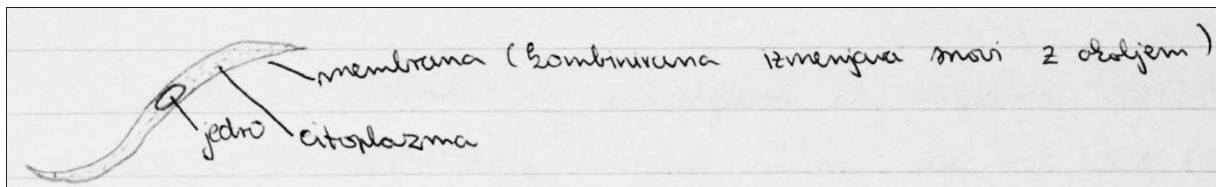 membrana (kombinirana izmenjava snovi z okoljem)
jedro
citoplazma